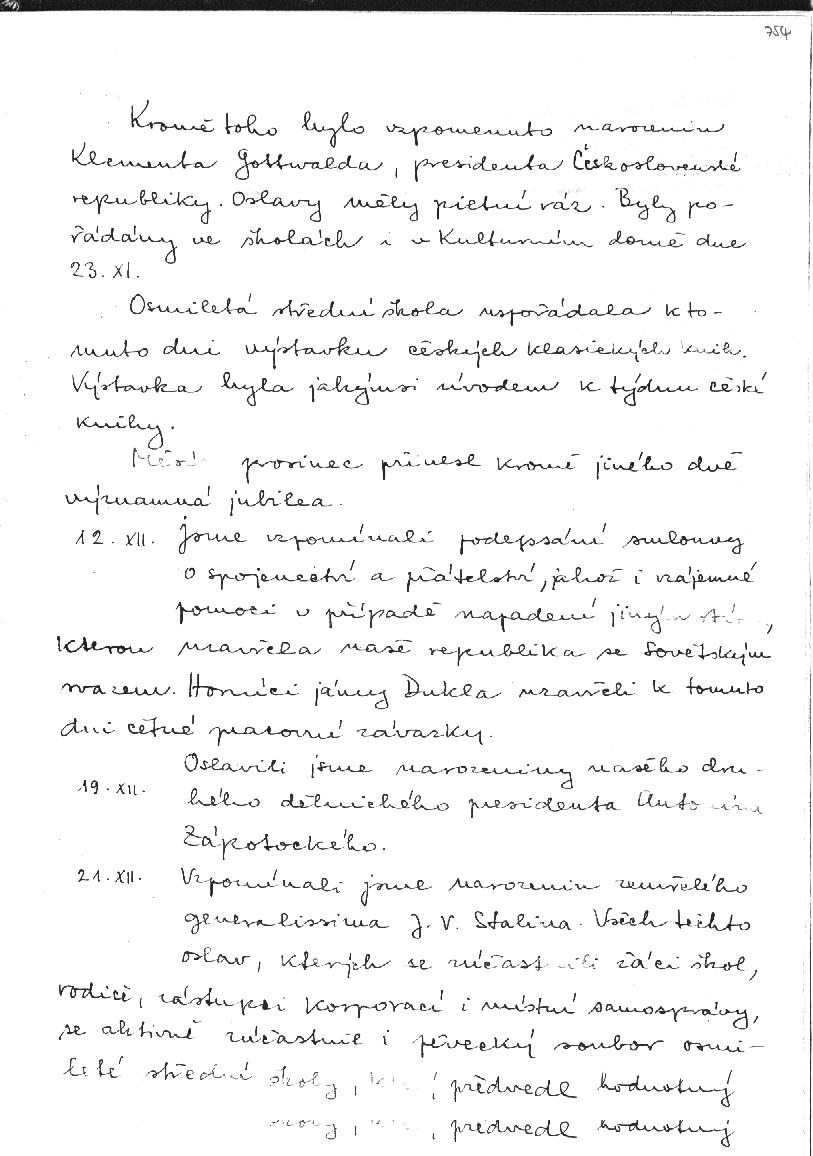 754
Kromě toho bylo vzpomenuto narozenin
Klementa Gottwalda, presidenta Československé
republiky. Oslavy měly pietní ráz. Byly po-
řádány ve školách i v Kulturním domě dne
23. XI.
Osmiletá střední škola uspořádala k to-
muto dni výstavku českých klasických knih.
Výstavka byla jakýmsi úvodem k týdnu české
knihy.
prosinec přinesl kromě jiného dvě
významná jubilea.
12. XII. Jsme vzpomínali podepsání smlouvy
o spojenectví a přátelství, jakož i vzájemné
pomoci v případě napadení
kterou uzavřela naše republika se Sovětským
svazem. Horníci jámy Dukla uzavřeli k tomuto
dni četné pracovní závazky.
Oslavili jsme narozeniny našeho dru-
19. XII.
hého dělnického presidenta Antonína
Zápotockého.
21. XII. Vzpomínali jsme narozenin zemřelého
generalissima J. V. Stalina. Všech těchto
oslav, kterých se zúčastnili žáci škol,
rodiče, zástupci korporací i místní samosprávy,
se aktivně zúčastnil i pěvecký soubor osmi-
leté střední školy, předvedl hodnotný
, předvedl hodnotný